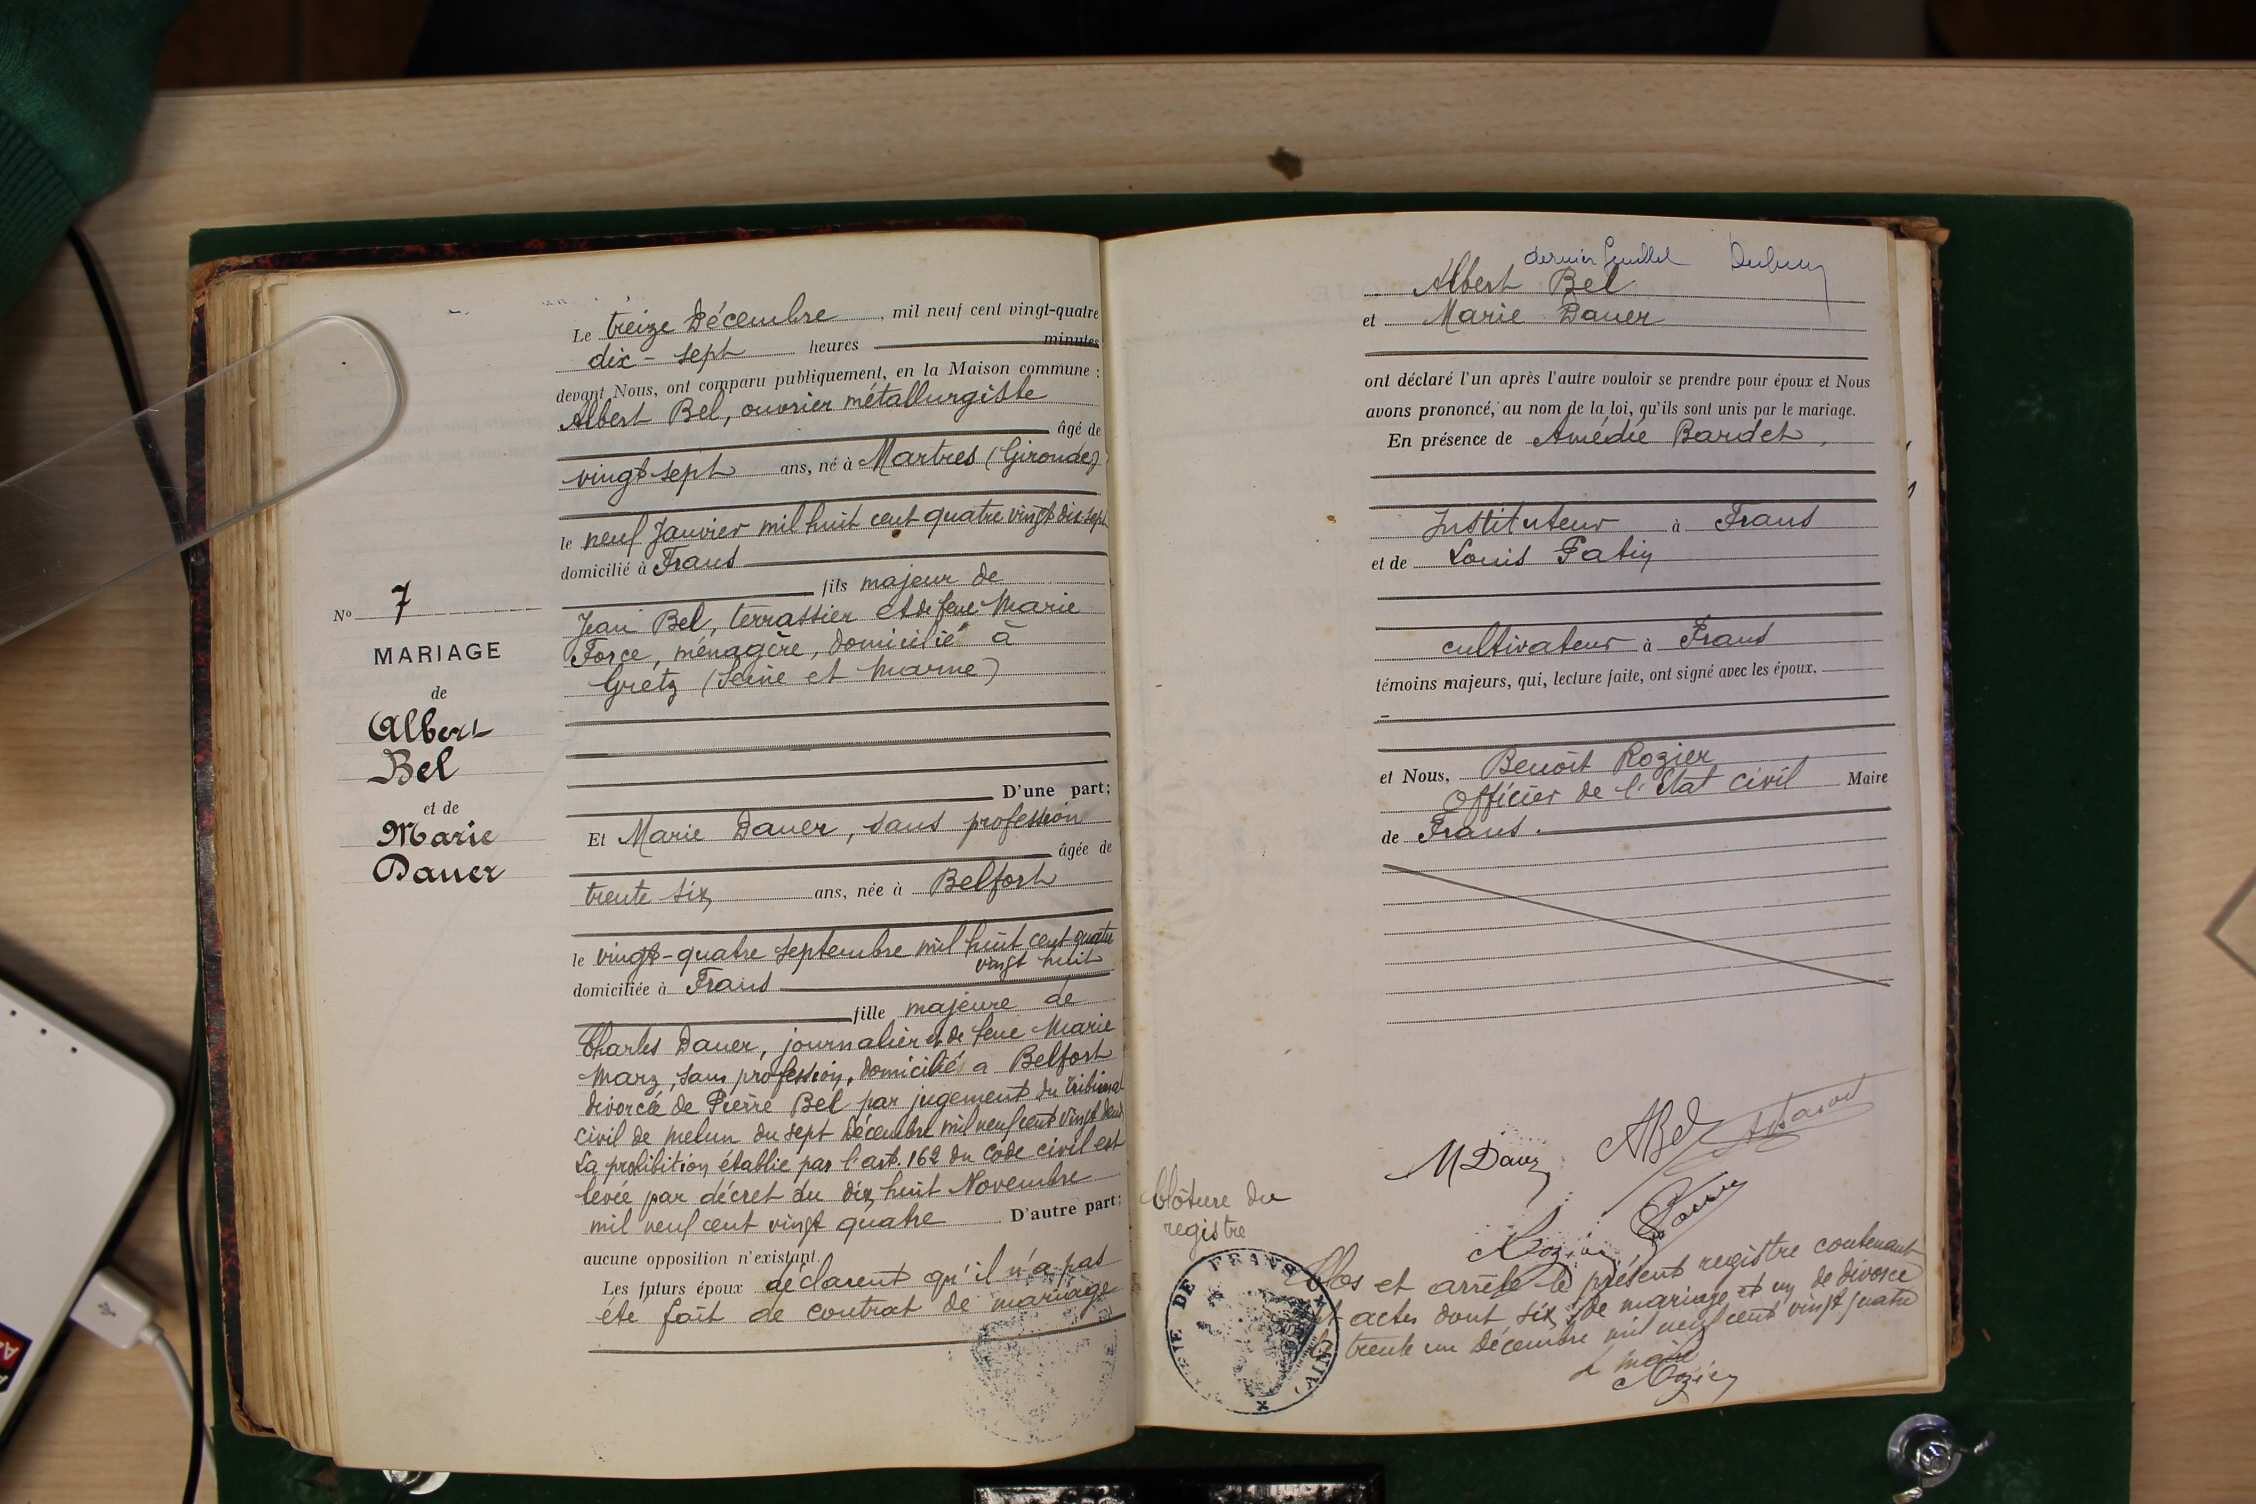 Le treize Décembre, mil neuf cent vingt-quatre
dix-sept heures minutes
devant Nous, ont comparu publiquement, en la Maison commune :
Albert Bel, ouvrier métallurgiste
âgé de
vingt sept ans, né à Martres (Gironde)
le neuf Janvier mil huit cent quatre vingt dix sept
domicilié à Frans
fils majeur de
Jean Bel, terrassier et de feue Marie
Force, ménagère, domicilié à
Gretz (Seine et Marne)
D'une part;
Et Marie Dauer, sans profession
âgée de
trente six ans, née à Belfort
le vingt-quatre septembre mil huit cent quatre
vingt huit
domiciliée à Frans
fille majeure de
Charles Dauer, journalier et de feue Marie
Marz, sans profession, domiciliés a Belfort
divorcée de Pierre Bel par jugement du Tribunal
civil de Melun du sept Décembre mil neuf cent vingt deux
La prohibition établie par l'art. 162 du Code civil est
levée par décret du dix huit Novembre
mil neuf cent vingt quatre D'autre part;
aucune opposition n'existant.
Les futurs époux déclarent qu'il n'a pas
été fait de contrat de mariage
No 7
MARIAGE
de
Albert
Bel
et de
Marie
Dauer
dernier feuillet
Albert Bel
et Marie Dauer
ont déclaré l'un après l'autre vouloir se prendre pour époux et Nous
avons prononcé, au nom de la loi, qu'ils sont unis par le mariage.
En présence de Amédée Bardet,
Instituteur à Frans
et de Louis Patin
cultivateur à Frans
témoins majeurs, qui, lecture faite, ont signé avec les époux.
et Nous, Benoît Rozier
Officier de l'Etat civil Maire
de Frans.
M Dauer ABel
Rozier
Clôture du
registre
Clos et arrêté le présent registre contenant
sept actes dont six de mariage et un de divorce
le trente un Décembre mil neuf cent vingt quatre
Le maire
Rozier
DE FRANS